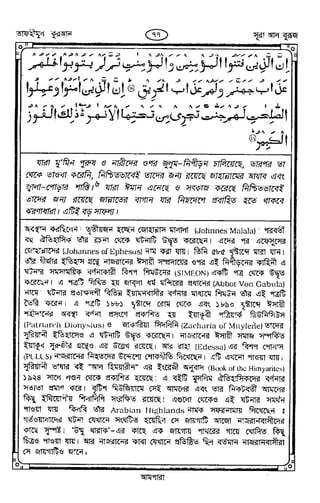 তাফহীমুল কুরআন
৭৭
সূরা আল বুরূজ
إِنَّ الَّذِينَ فَتَنُوا الْمُؤْمِنِينَ وَالْمُؤْمِنَاتِ ثُمَّ لَمْ يَتُوبُوا فَلَهُمْ
عَذَابُ جَهَنَّمَ وَلَهُمْ عَذَابُ الْحَرِيقِ ۝ إِنَّ الَّذِينَ آمَنُوا وَعَمِلُوا
الصَّالِحَاتِ لَهُمْ جَنَّاتٌ تَجْرِي مِنْ تَحْتِهَا الْأَنْهَارُ ۚ ذَٰلِكَ الْفَوْزُ
الْكَبِيرُ ۝
যারা মু'মিন পুরুষ ও নারীদের ওপর জুলুম-নিপীড়ন চালিয়েছে, তারপর তা
থেকে তাওবা করেনি, নিশ্চিতভাবেই তাদের জন্য রয়েছে জাহান্নামের আযাব এবং
জ্বালা-পোড়ার শাস্তি। যারা ঈমান এনেছে ও সৎকাজ করেছে নিশ্চিতভাবেই
তাদের জন্য রয়েছে জান্নাতের বাগান যার নিম্নদেশে প্রবাহিত হতে থাকবে
ঝরণাধারা। এটিই বড় সাফল্য।
অবস্থান করছিলেন। তৃতীয়জন হচ্ছেন জোহান্নাস মালালা (Johnnes Malala)। পরবর্তী
বহু ঐতিহাসিক তাঁর রচনা থেকে ঘটনাটি উদ্ধৃত করেছেন। এদের পর এফেসুসের
জোহান্নাসের (Johannes of Ephesus) নাম করা যায়। তিনি ৫৮৫ খৃষ্টাব্দে মারা যান।
তাঁর গীর্জার ইতিহাস গ্রন্থে নাজরানের ঈসায়ী সম্প্রদায়ের ওপর এই নিপীড়নের কাহিনী এ
ঘটনার সমসাময়িক বর্ণনাকারী বিশপ শিমউনের (SIMEON) একটি পত্র থেকে উদ্ধৃত
করেছেন। এ পত্রটি লিখিত হয় জাবুলা ধর্ম মন্দিরের প্রধানের (Abbot Von Gabula)
নামে। ঘটনার প্রত্যক্ষদর্শী বিভিন্ন ইয়ামনবাসীর বর্ণনার মাধ্যমে শিমউন তাঁর এই পত্রটি
তৈরি করেন। এ পত্রটি ১৮৮১ খৃষ্টাব্দে রোম থেকে এবং ১৮৯০ খৃষ্টাব্দে ঈসায়ী
শহীদানের অবস্থা বর্ণনা প্রসংগে প্রকাশিত হয়। ইয়াকূবী পত্রিয়ার্ক ডিউনিসিউস
(Patriarch Dionysius) ও জাকারিয়া সিদলিনি (Zacharia of Mitylene) তাদের
সুরিয়ানী ইতিহাসেও এ ঘটনাটি উদ্ধৃত করেছেন। নাজরানের ঈসায়ী সমাজ সম্পর্কিত
ইয়াকূব সুরুজীর গ্রন্থেও এর উল্লেখ রয়েছে। আর রাহা (Edessa) এর বিশপ পোলস
(PULUS) নাজরানের নিহতদের উদ্দেশ্যে শোকগীতি লিখেছেন। এটি এখনো পাওয়া যায়।
সুরিয়ানী ভাষার বই "আল হিময়ারীন" এর ইংরেজী অনুবাদ (Book of the Himyarites)
১৯২৪ সালে লণ্ডন থেকে প্রকাশিত হয়েছে। এ বইটি মুসলিম ঐতিহাসিকদের বর্ণনার
সত্যতা প্রমাণ করে। বৃটিশ মিউজিয়ামে সেই আমলের এবং তার নিকটবর্তী আমলের
কিছু ইথিয়োপীয় শিলালিপি সংরক্ষিত রয়েছে। এগুলো থেকেও এই ঘটনার সমর্থন
পাওয়া যায়। ফিলবি তাঁর Arabian Highlands নামক সফরনামায় লিখেছেন :
গর্তওয়ালাদের ঘটনা যেখানে সংঘটিত হয়েছিল সে জায়গাটি আজো নাজরানবাসীদের
কাছে সুস্পষ্ট। 'উম্মু খারাক'-এর কাছে এক জায়গায় পাথরের গায়ে খোদিত কিছু
চিত্রও পাওয়া যায়। আর নাজরানের কাবা যেখানে প্রতিষ্ঠিত ছিল বর্তমান নাজরানবাসীরা
সে জায়গাটিও জানে।
আমপারা